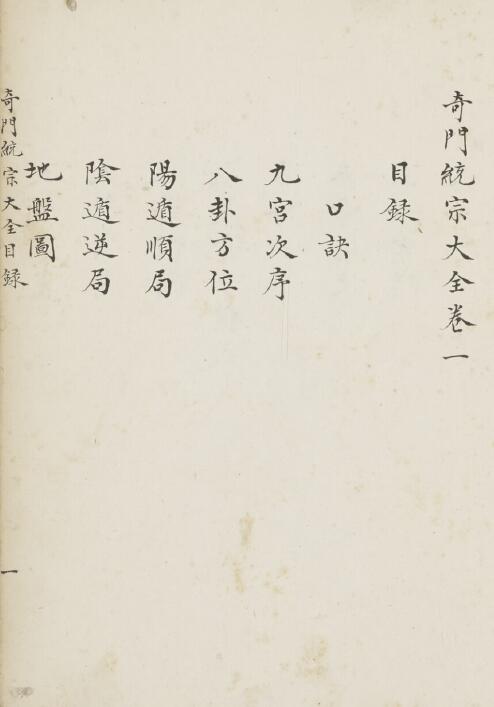 奇門統宗大全卷一
目録
口訣
九宮次序
八卦方位
陽遁順局
陰遁逆局
地盤圖
奇門統宗大全目録
一